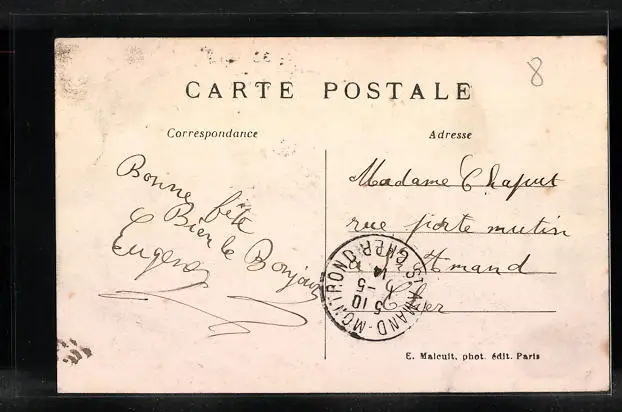 8
CARTE POSTALE
Correspondance
Adresse
Bonne fête
Bien le Bonjour
Eugene
Madame Chaput
rue porte mutin
St Amand
Cher
ST AMAND-MONTROND
CHER
5 10
14 -5
E. Malcuit, phot. édit. Paris